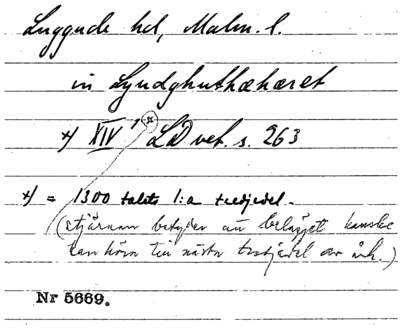 Luggude hd, Malm. l.
in Lyudghuthæhæret
x) XIV 1 (x) LD vet. s. 263
x) = 1300 talets 1:a tredjedel.
(stjärnan betyder att belägget kanske
kan höra till nästa tredjedel av årh.)
Nr 5669.